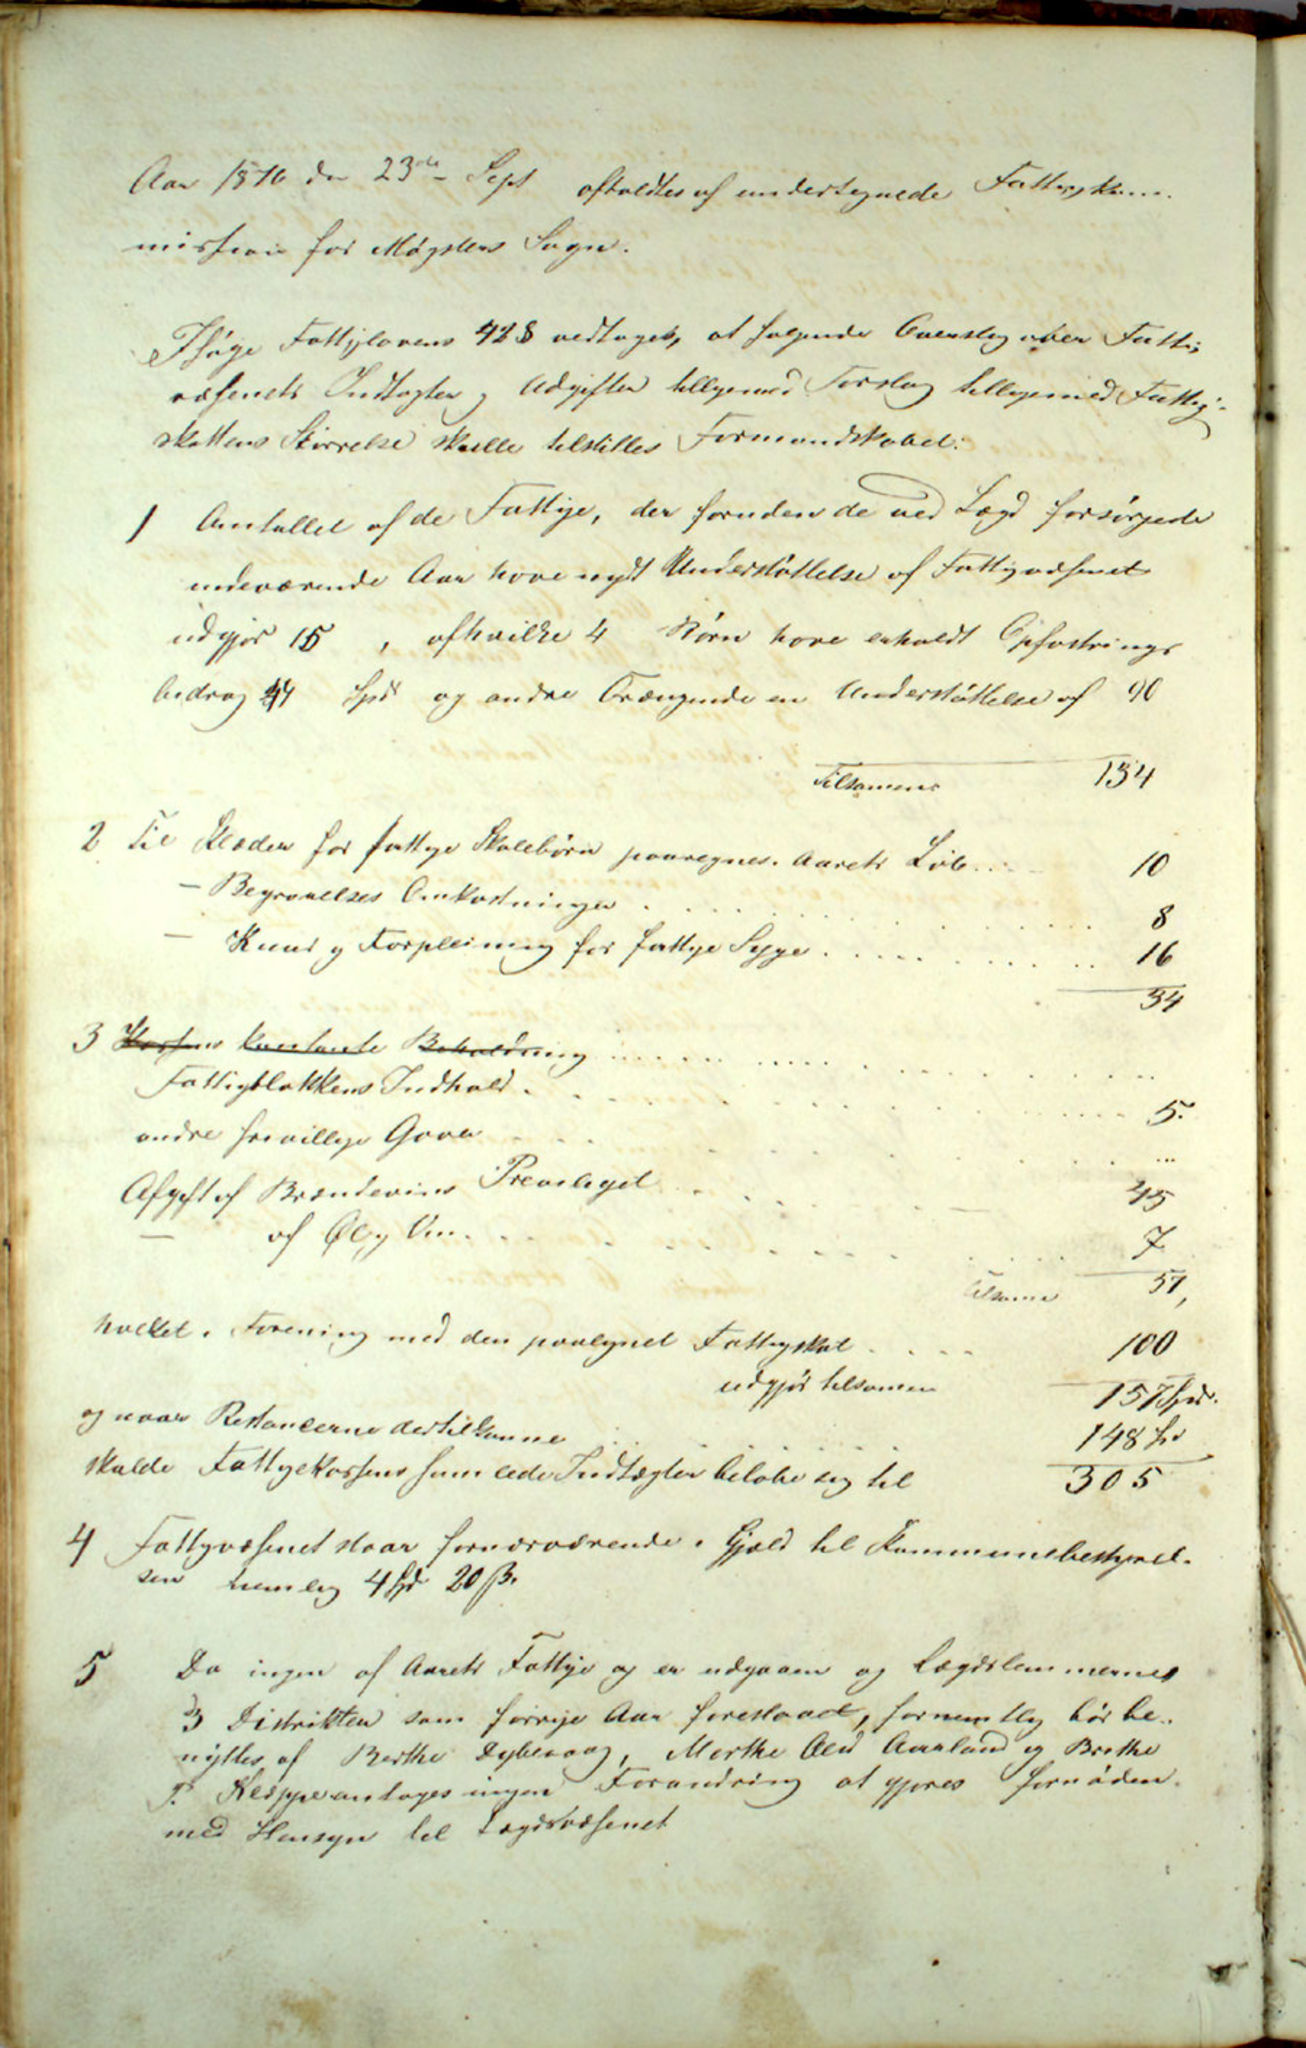 Aar 1846 den 23de Sept afholdtes af undertegnede Fattigkom-
mission for Møgsters Sogn.
Ifølge Fattiglovens 42 § vedtoges, at følgende Overslag over Fattig-
væsenets Indtægter og Udgifter tilligemed Forslag tilligemed Fattig-
skattens Størrelse skulle tilstilles Formandskabet:
1 Antallet af de Fattige, der foruden de ved Lægd forsørgede
indeværende Aar have nydt Understøttelse af Fattigvæsenet
udgjør 15, af hvilke 4 Børn have erholdt Opfostrings
bidrag 44 Spd og andre Trængende en Understøttelse af 90
Tilsammen 134
2 Til Klæder for fattige Skolebørn paaregnes i Aarets Løb .... 10
— Begravelses Omkostninger . . . . . 8
— Kuur og Forpleining for fattige Syge . . . . . 16
34
3 Kassens kontante Beholdning ..... ...
Fattigblokkens Indhold . . . . . 5.
andre frivillige Gaver . . . . . ...
Afgift af Brændeviins Previleget . . . . . 45
— af Øl og Vin . . . . . 7
tilsamm 57,
hvilket i Forening med den paalignet Fattigskat . . . . 100
udgjør tilsamen 157 Spd.
og naar Restancerne dertil komme . . . . . 148 Spd
skulde Fattigekassens samlede Indtægter beløbe sig til 305
4 Fattigvæsenet staar fornærværende i Gjæld til Kommunebestyrel-
sen nemlig 4 Spd 20 ß.
5 Da ingen af Aarets Fattige og er udgaaen og Lægdslemmernes
3 Distrikter som forrige Aar foreslaaet, fornemtlig bør be-
nyttes af Berthe Dybevaag, Marthe Aarland og Brithe
P. Kleppe antages ingen Forandring at gjøres fornøden
med Hensyn til Lægdsvæsenet